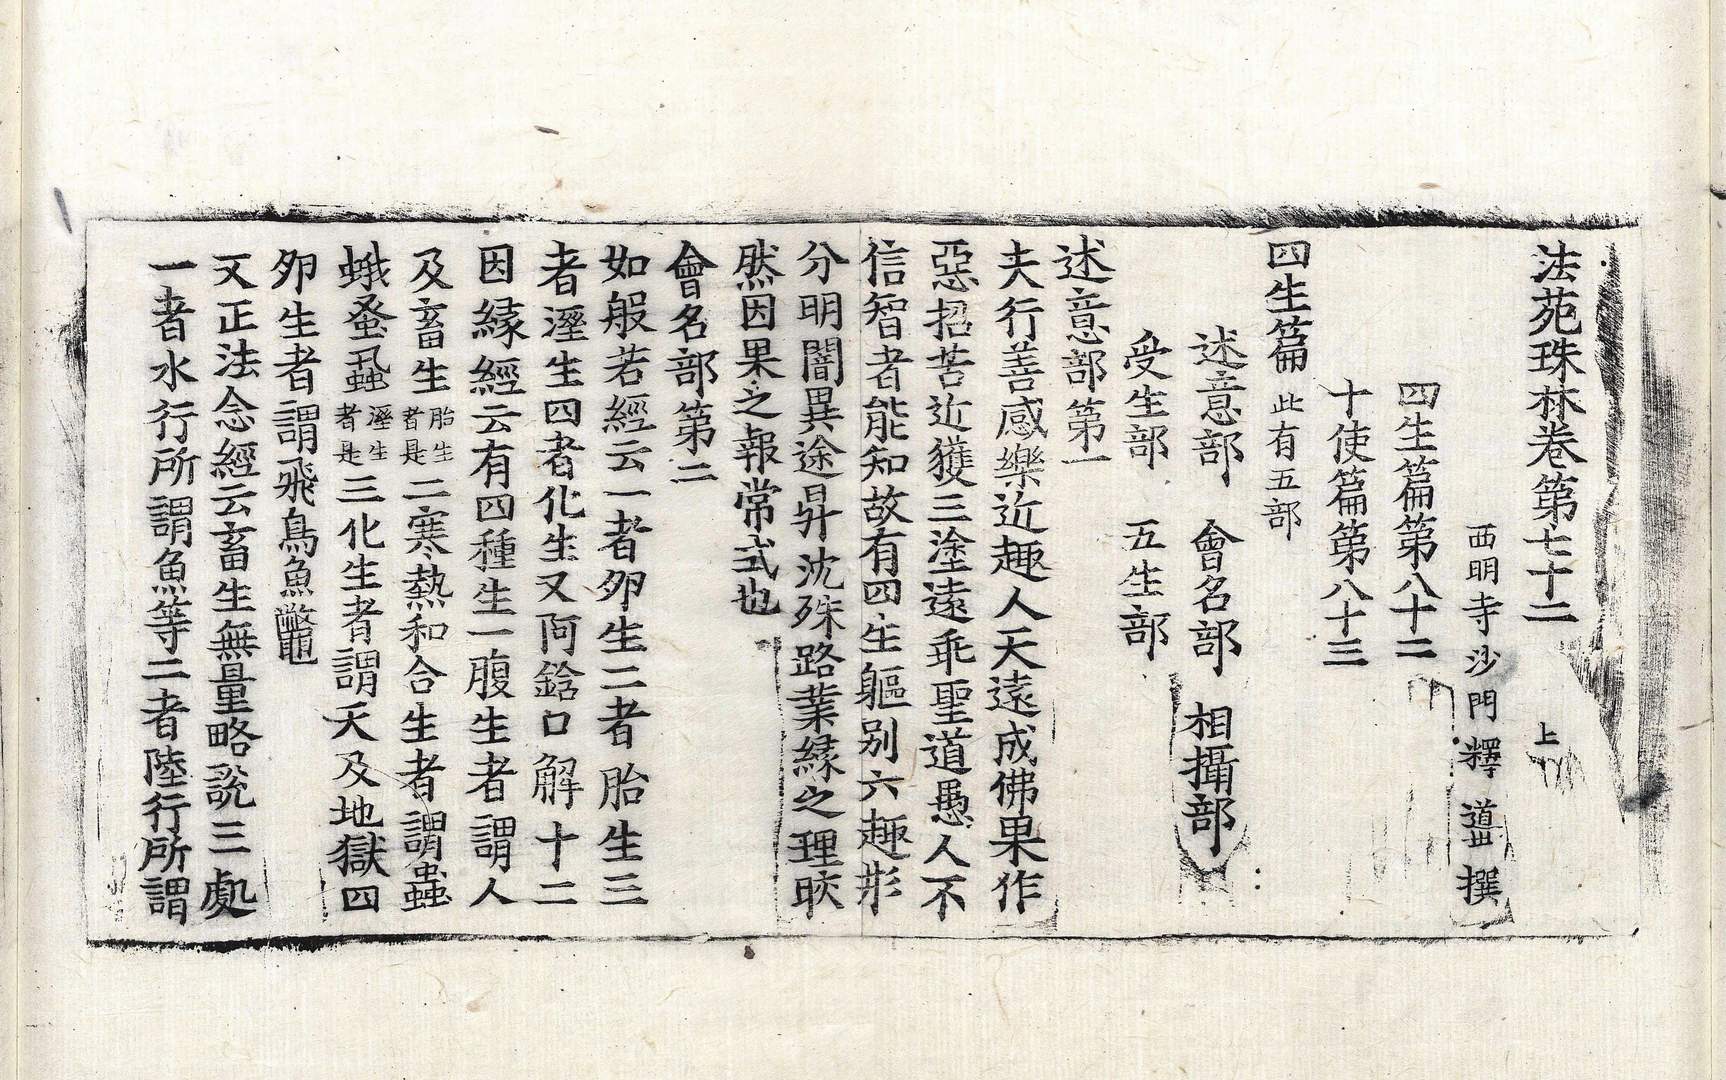 法苑珠林卷第七十二　上
西明寺沙門釋　道世　撰
四生篇第八十二
十使篇第八十三
四生篇此有五部
述意部　會名部　相攝部
受生部　五生部
述意部第一
夫行善感樂近趣人天遠成佛果作
惡招苦近獲三塗遠乖聖道愚人不
信智者能知故有四生軀別六趣形
分明闇異途昇沈殊路業緣之理皎
然因果之報常式也
會名部第二
如般若經云一者卵生二者胎生三
者溼生四者化生又阿鋡口解十二
因緣經云有四種生一腹生者謂人
及畜生胎生者是二寒熱和合生者謂蟲
蛾蚤虱溼生者是三化生者謂天及地獄四
卵生者謂飛鳥魚鼈
又正法念經云畜生無量略說三處
一者水行所謂魚等二者陸行所謂